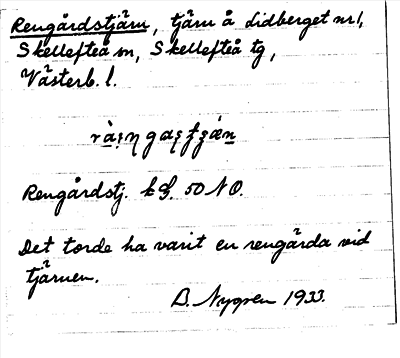 Rengårdstjärn, tjärn å Lidberget nr 1,
Skellefteå sn, Skellefteå tg,
Västerb. l.
Rengårdstj. 50 NO.
Det torde ha varit en rengärda vid
tjärnen.
D. Nygren 1933.